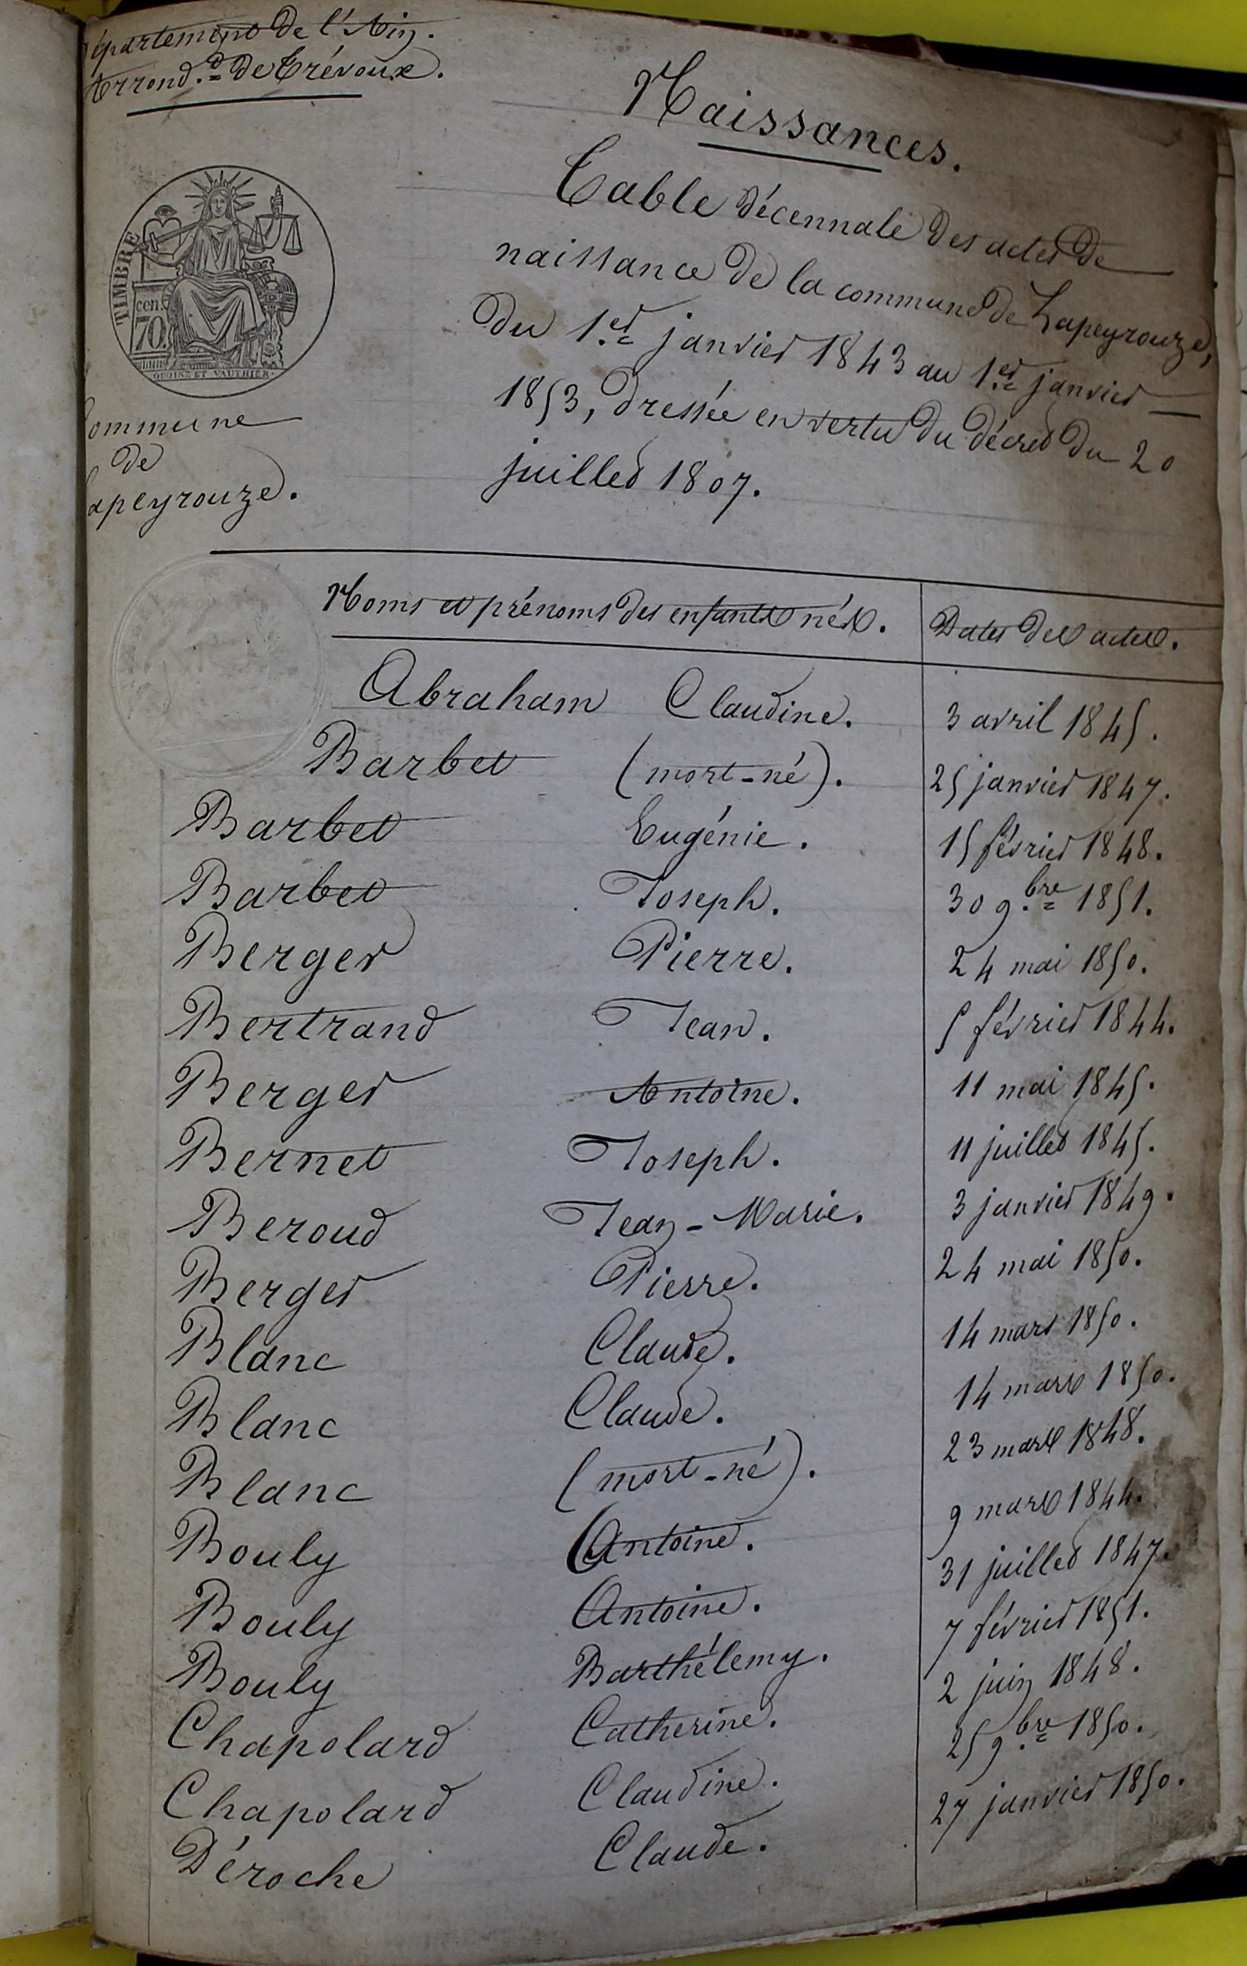 épartement de l'Ain.
Arrond.d de Trévoux.
Naissances.
Table décennale des actes de
naissance de la commune de Lapeyrouze,
du 1.er janvier 1843 au 1.er janvier
1853, dressée en vertu du décret du 20
juillet 1807.
TIMBRE
cen.
70
ommune
de
apeyrouze.
Noms et prénoms des enfants nés. Dates des actes.
Abraham Claudine. 3 avril 1845.
Barbet (mort-né). 25 janvier 1847.
Barbet Eugénie. 15 février 1848.
Barbet Joseph. 30 9.bre 1851.
Berger Pierre. 24 mai 1850.
Bertrand Jean. 5 février 1844.
Berger Antoine. 11 mai 1845.
Bernet Joseph. 11 juillet 1845.
Beroud Jean-Marie. 3 janvier 1849.
Berger Pierre. 24 mai 1850.
Blanc Claude. 14 mars 1850.
Blanc Claude. 14 mars 1850.
Blanc (mort-né). 23 mars 1848.
Bouly Antoine. 9 mars 1844.
Bouly Antoine. 31 juillet 1847.
Bouly Barthélemy. 7 février 1851.
Chapolard Catherine. 2 juin 1848.
Chapolard Claudine. 25 9.bre 1850.
Déroche Claude. 27 janvier 1850.